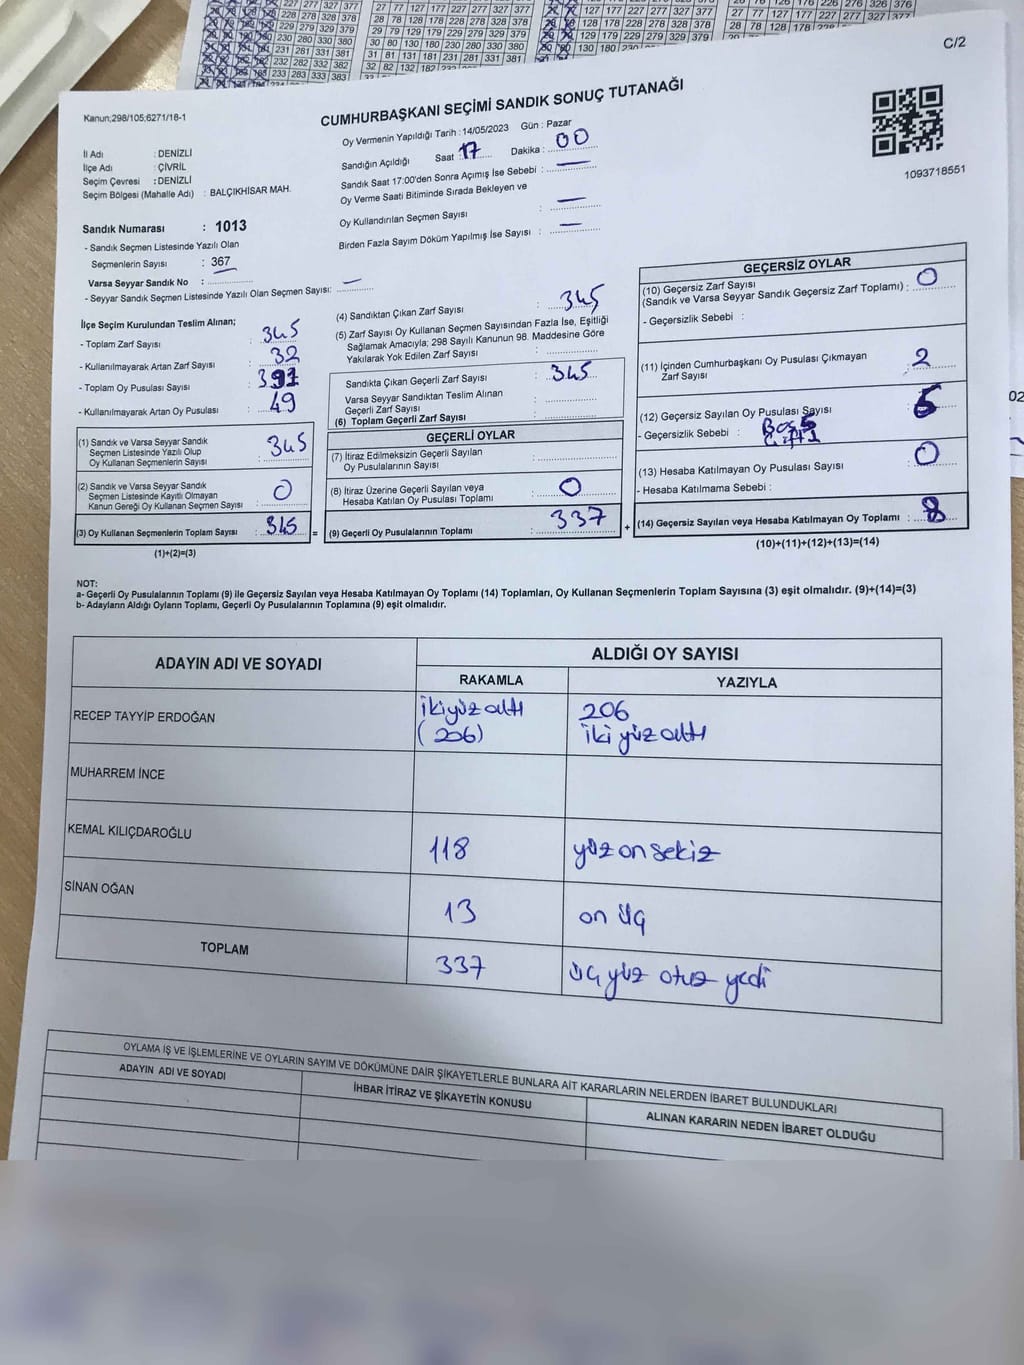 C/2
Kanun;298/105;6271/18-1
CUMHURBAŞKANI SEÇİMİ SANDIK SONUÇ TUTANAĞI
1093718551
İl Adı : DENİZLİ
İlçe Adı : ÇİVRİL
Seçim Çevresi : DENİZLİ
Seçim Bölgesi (Mahalle Adı) : BALÇIKHİSAR MAH.
Sandık Numarası : 1013
- Sandık Seçmen Listesinde Yazılı Olan
Seçmenlerin Sayısı : 367
Varsa Seyyar Sandık No :
- Seyyar Sandık Seçmen Listesinde Yazılı Olan Seçmen Sayısı: —
Oy Vermenin Yapıldığı Tarih : 14/05/2023 Gün : Pazar
Sandığın Açıldığı Saat : 17 Dakika : 00
Sandık Saat 17:00'den Sonra Açımış İse Sebebi : —
Oy Verme Saati Bitiminde Sırada Bekleyen ve
Oy Kullandırılan Seçmen Sayısı : —
Birden Fazla Sayım Döküm Yapılmış İse Sayısı : —
İlçe Seçim Kurulundan Teslim Alınan;
- Toplam Zarf Sayısı : 345
- Kullanılmayarak Artan Zarf Sayısı : 32
- Toplam Oy Pusulası Sayısı :
- Kullanılmayarak Artan Oy Pusulası : 49
(1) Sandık ve Varsa Seyyar Sandık
Seçmen Listesinde Yazılı Olup
Oy Kullanan Seçmenlerin Sayısı : 345
(2) Sandık ve Varsa Seyyar Sandık
Seçmen Listesinde Kayıtlı Olmayan
Kanun Gereği Oy Kullanan Seçmen Sayısı : 0
(3) Oy Kullanan Seçmenlerin Toplam Sayısı : 345 =
(1)+(2)=(3)
(4) Sandıktan Çıkan Zarf Sayısı : 345
(5) Zarf Sayısı Oy Kullanan Seçmen Sayısından Fazla İse, Eşitliği
Sağlamak Amacıyla; 298 Sayılı Kanunun 98. Maddesine Göre
Yakılarak Yok Edilen Zarf Sayısı :
Sandıkta Çıkan Geçerli Zarf Sayısı : 345
Varsa Seyyar Sandıktan Teslim Alınan
Geçerli Zarf Sayısı :
(6) Toplam Geçerli Zarf Sayısı :
GEÇERLİ OYLAR
(7) İtiraz Edilmeksizin Geçerli Sayılan
Oy Pusulalarının Sayısı :
(8) İtiraz Üzerine Geçerli Sayılan veya
Hesaba Katılan Oy Pusulası Toplamı : 0
(9) Geçerli Oy Pusulalarının Toplamı : 337 +
GEÇERSİZ OYLAR
(10) Geçersiz Zarf Sayısı
(Sandık ve Varsa Seyyar Sandık Geçersiz Zarf Toplamı) : 0
- Geçersizlik Sebebi :
(11) İçinden Cumhurbaşkanı Oy Pusulası Çıkmayan
Zarf Sayısı : 2
(12) Geçersiz Sayılan Oy Pusulası Sayısı :
- Geçersizlik Sebebi : Boş 5
(13) Hesaba Katılmayan Oy Pusulası Sayısı : 0
- Hesaba Katılmama Sebebi :
(14) Geçersiz Sayılan veya Hesaba Katılmayan Oy Toplamı : 8
(10)+(11)+(12)+(13)=(14)
NOT:
a- Geçerli Oy Pusulalarının Toplamı (9) ile Geçersiz Sayılan veya Hesaba Katılmayan Oy Toplamı (14) Toplamları, Oy Kullanan Seçmenlerin Toplam Sayısına (3) eşit olmalıdır. (9)+(14)=(3)
b- Adayların Aldığı Oyların Toplamı, Geçerli Oy Pusulalarının Toplamına (9) eşit olmalıdır.
ADAYIN ADI VE SOYADI
ALDIĞI OY SAYISI
RAKAMLA YAZIYLA
RECEP TAYYİP ERDOĞAN iki yüz altı 206
(206) iki yüz altı
MUHARREM İNCE
KEMAL KILIÇDAROĞLU 118 yüz on sekiz
SİNAN OĞAN 13 on üç
TOPLAM 337 üç yüz otuz yedi
OYLAMA İŞ VE İŞLEMLERİNE VE OYLARIN SAYIM VE DÖKÜMÜNE DAİR ŞİKAYETLERLE BUNLARA AİT KARARLARIN NELERDEN İBARET BULUNDUKLARI
ADAYIN ADI VE SOYADI İHBAR İTİRAZ VE ŞİKAYETİN KONUSU ALINAN KARARIN NEDEN İBARET OLDUĞU